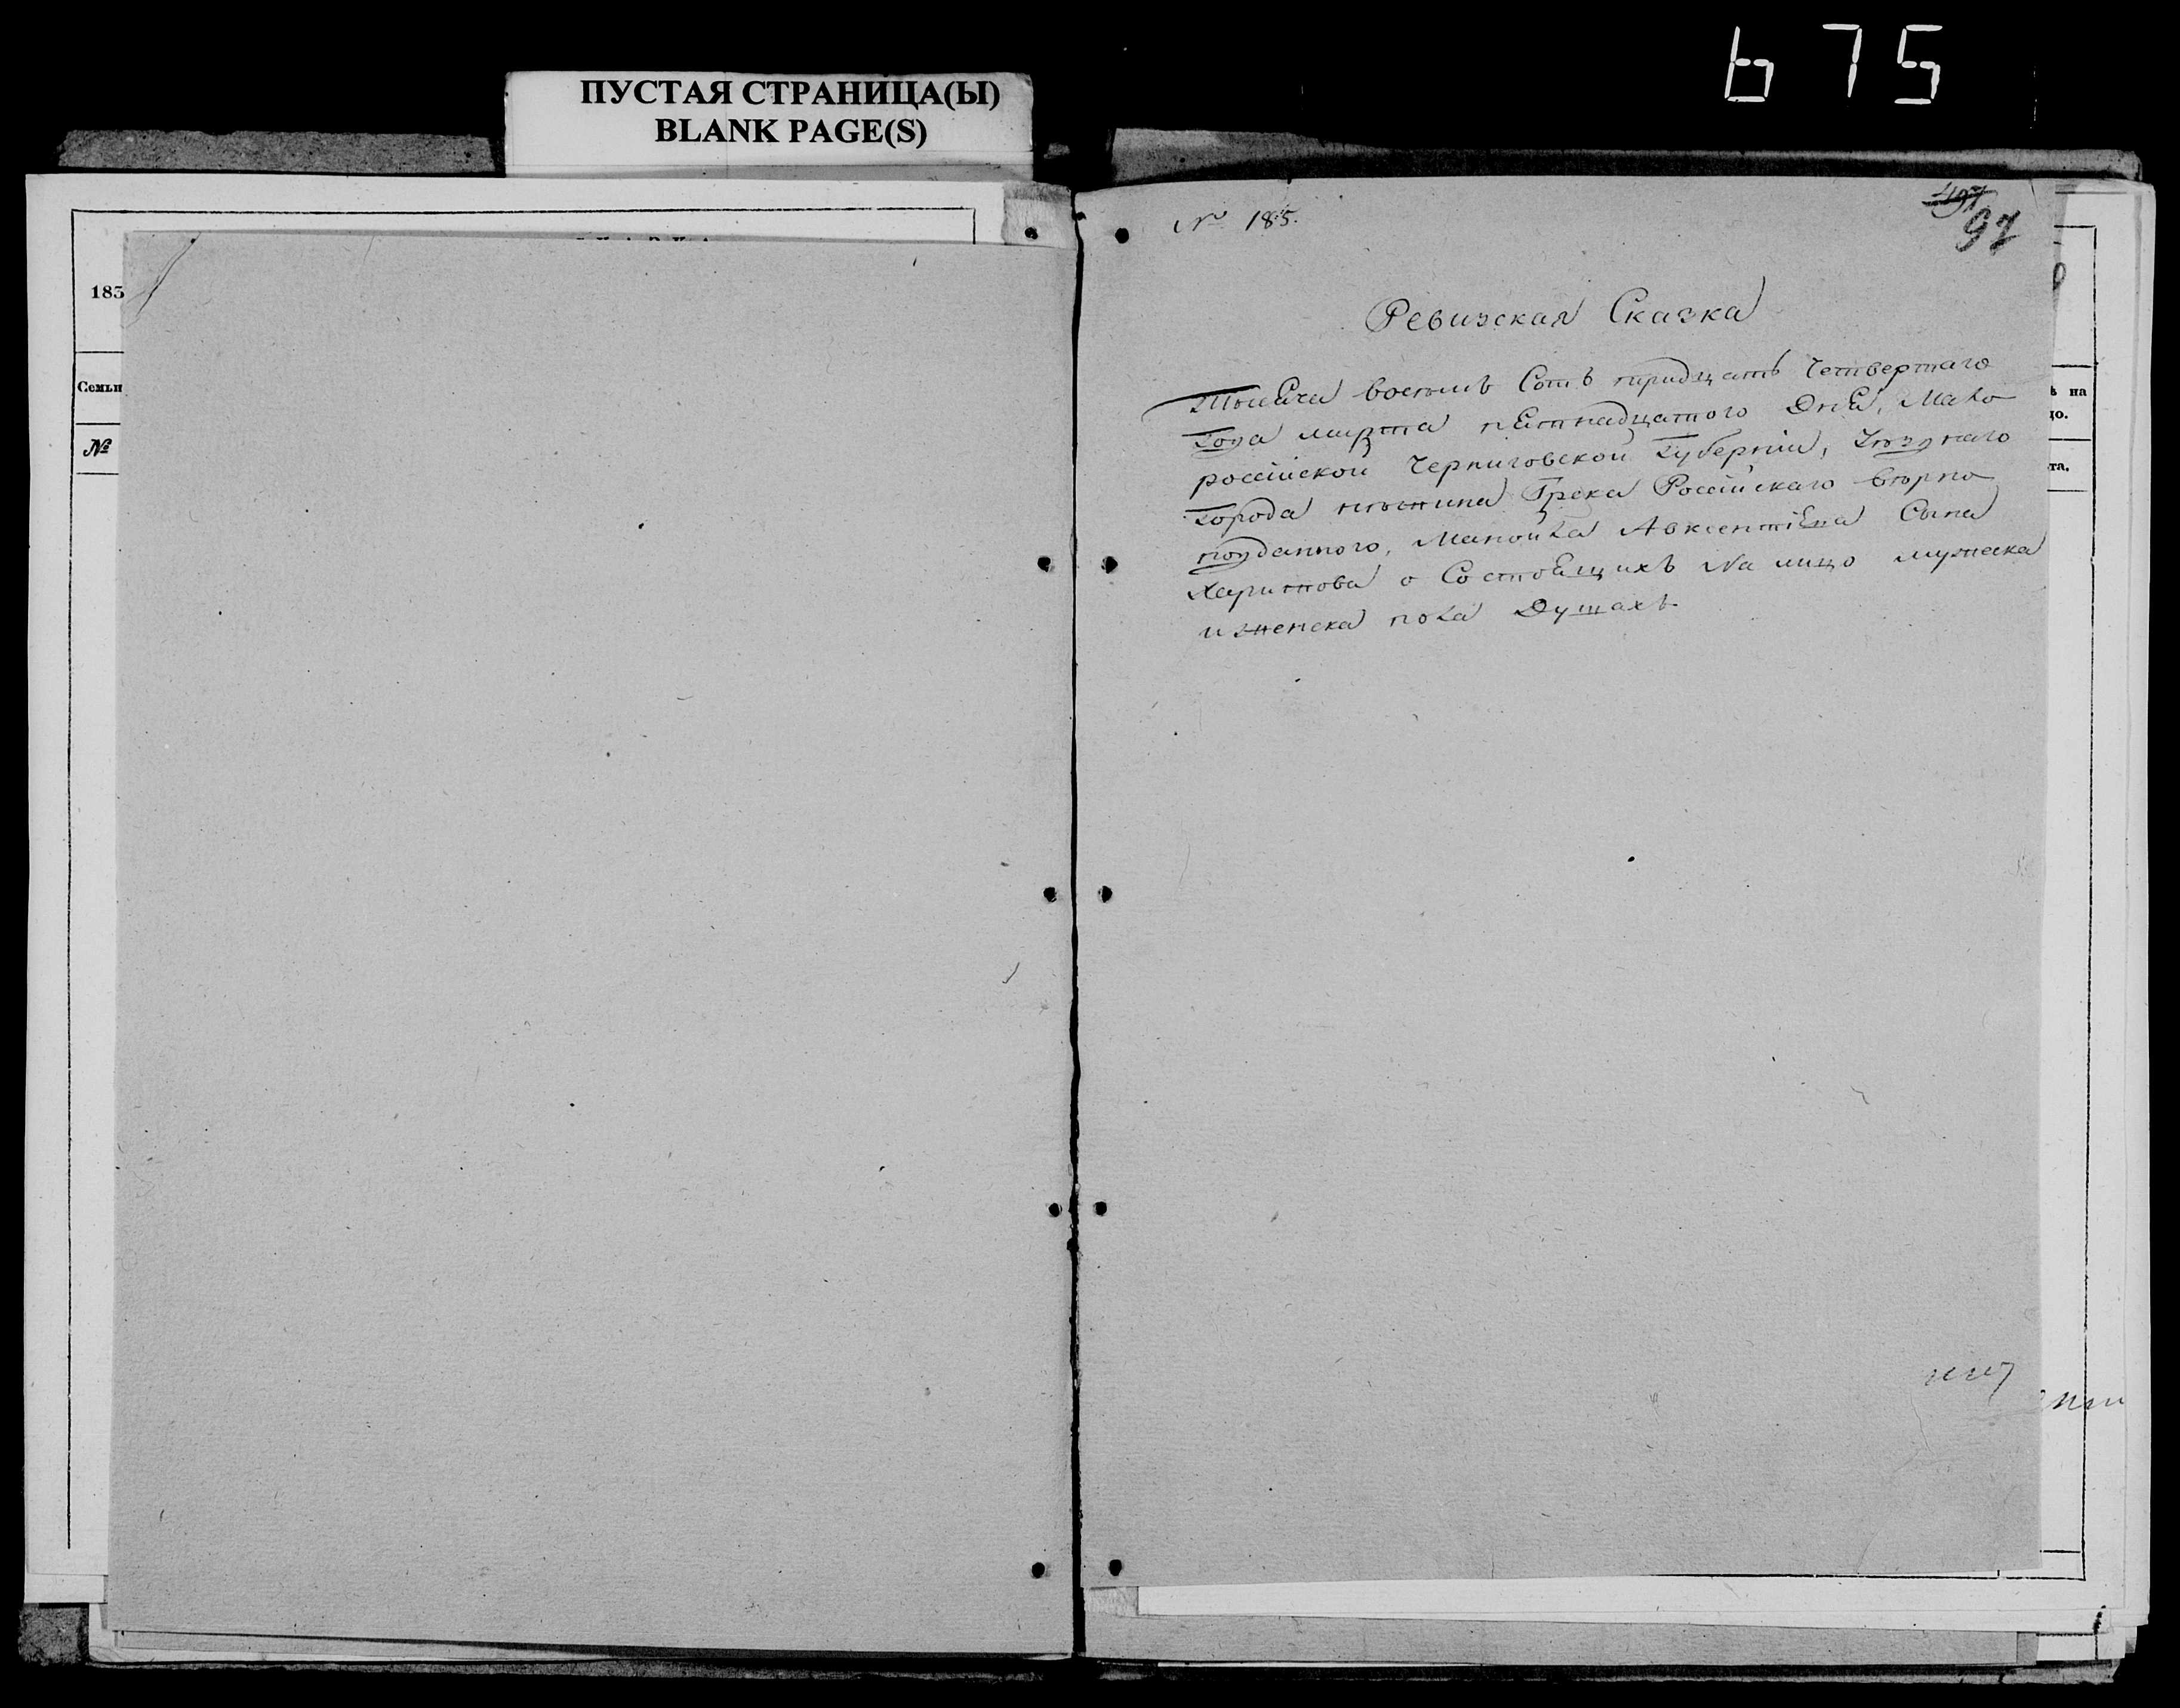 675
ПУСТАЯ СТРАНИЦА(Ы)
BLANK PAGE(S)
183
Семьи
№
№ 185.
497
97
Ревизская Сказка
Тысяча восемъ Сотъ тридцать Четвертаго
Года марта пятнадцатого Дня, Мало
россійской Черниговской Губерніи, Уезднаго
Города нѣжина Грека Россійскаго вѣрно
подданного, Манойла Авксентіева Сына
Харитова о Состоящихъ На лицо мужеска
и женска пола Душахъ.
ѣ на
цо.
та.